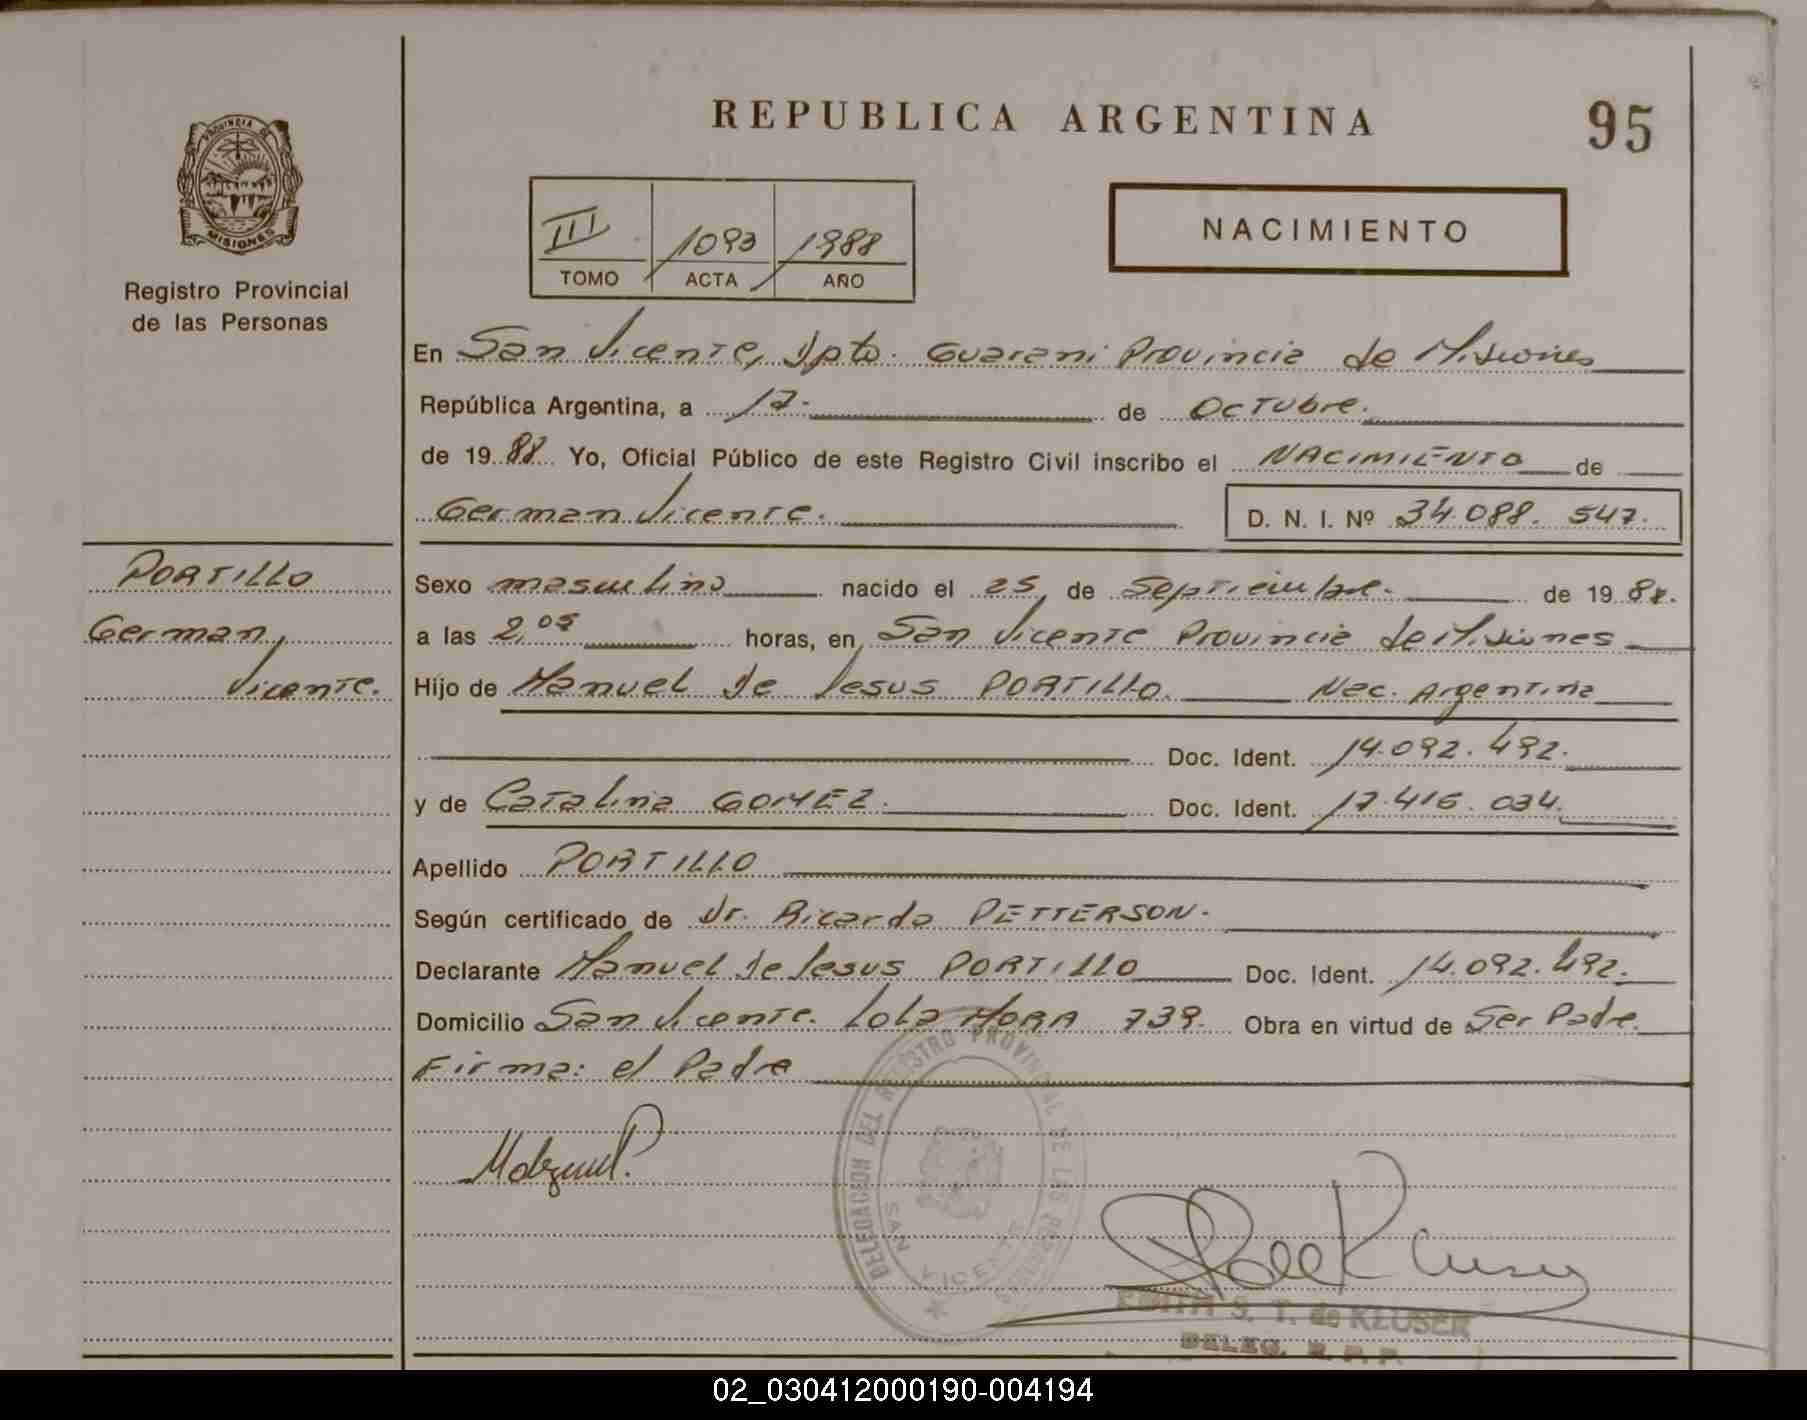 REPUBLICA ARGENTINA
95
PROVINCIA DE
MISIONES
Registro Provincial
de las Personas
III 1093 1988
TOMO ACTA AÑO
NACIMIENTO
En San Vicente, Dpto. Guarani Provincia de Misiones
República Argentina, a 17. de Octubre.
de 19 88 Yo, Oficial Público de este Registro Civil inscribo el NACIMIENTO de
German Vicente. D. N. I. Nº 34.088. 547.
PORTILLO
German
Vicente.
Sexo masculino nacido el 25 de Septiembre. de 19 88.
a las 2,05 horas, en San Vicente Provincia de Misiones
Hijo de Manuel De Jesus PORTILLO. Nac. Argentina
Doc. Ident. 14.092.492.
y de Catalina GOMEZ. Doc. Ident. 17.416.034.
Apellido PORTILLO
Según certificado de Dr. Ricardo PETTERSON.
Declarante Manuel de Jesus PORTILLO Doc. Ident. 14.092.492.
Domicilio San Vicente. Lola MORA 739. Obra en virtud de Ser Padre.
Firma: el Padre
DELEGACION DEL REGISTRO PROVINCIAL DE LAS PERSONAS
SAN VICENTE
EDITH S. T. de KLUSER
DELEG. R. P. P.
02_030412000190-004194